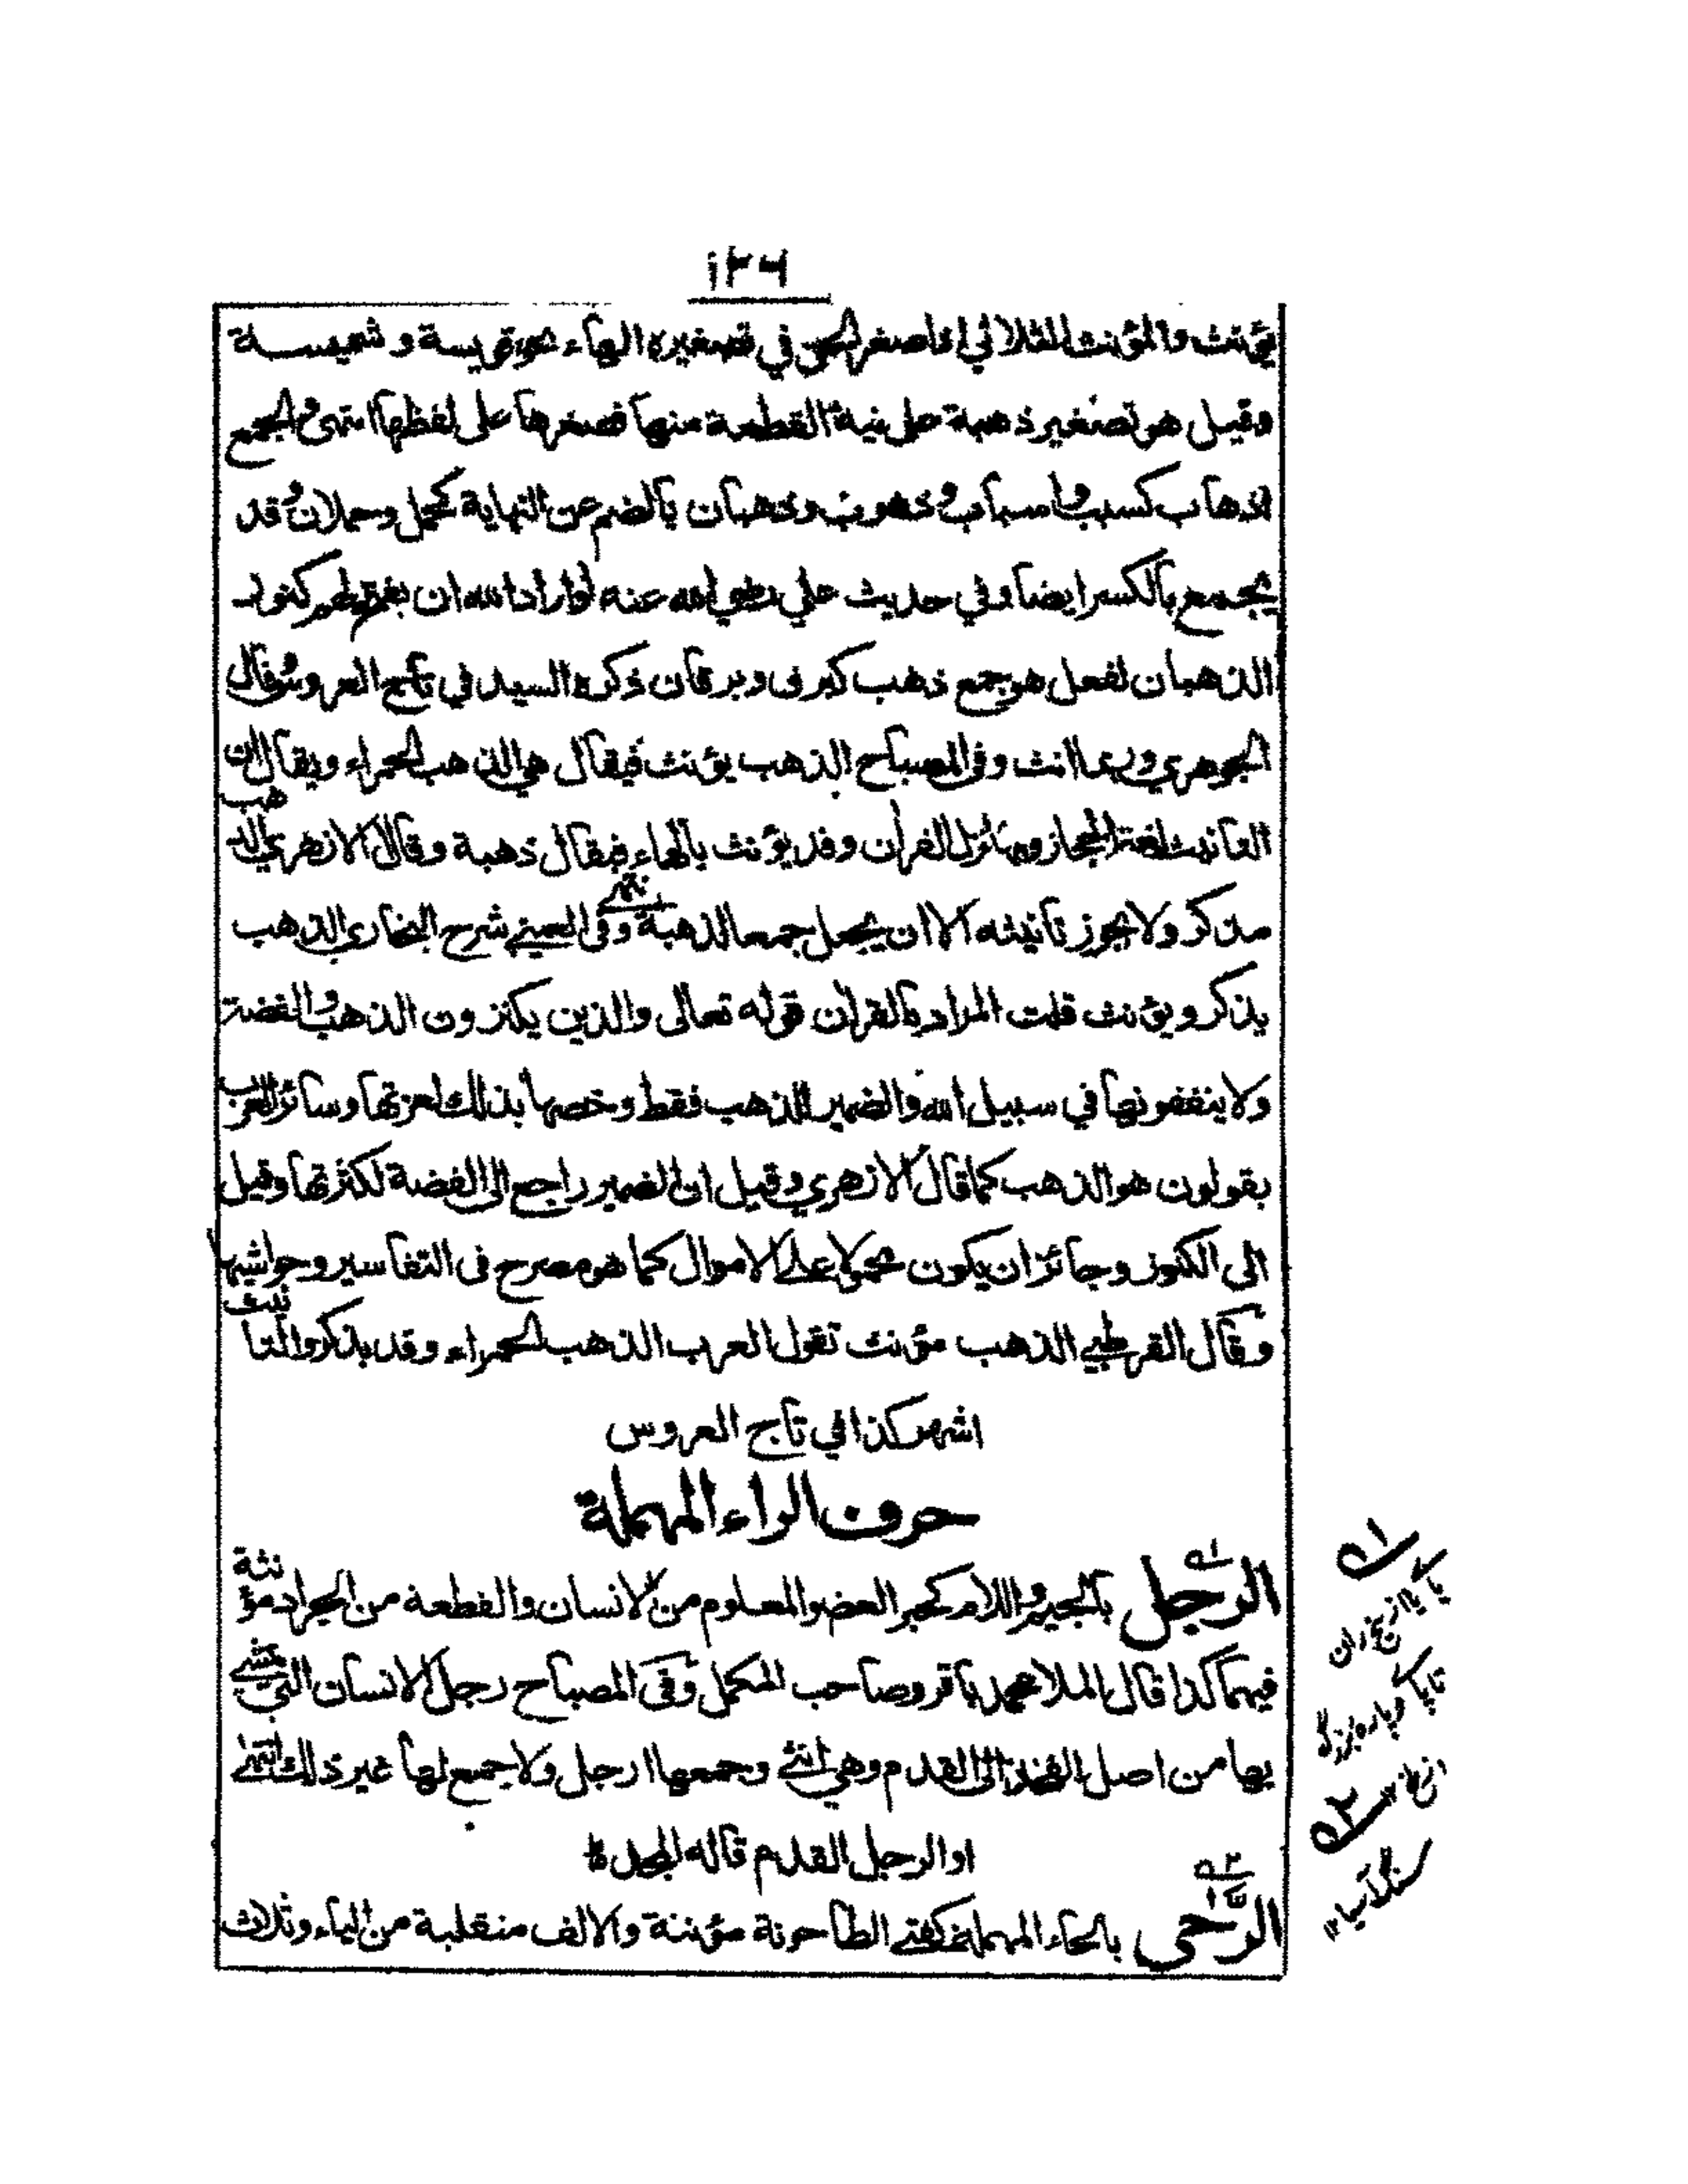 ١٣٦
يؤنث والمؤنث الثلاثي اذا صغر الحق في تصغيره الهاء نحو قويسة و شميسة
وقيل هو تصغير ذهبة على نية القطعة منها فصغرها على لفظها انتهى والجمع
اذهاب كسبب واسباب وذهوب وذهبان بالضم عن النهاية كحمل وحملان وقد
يجمع بالكسر ايضا وفي حديث علي رضي الله عنه لو اراد الله ان يفتح لهم كنوز
الذهبان لفعل هو جمع ذهب كبرق وبرقان ذكره السيد في تاج العروس وقال
الجوهري وربما انث وفى المصباح الذهب يؤنث فيقال هي الذهب الحمراء ويقال ان
التانيث لغة الحجاز وبها نزل القرأن وقد يؤنث بالهاء فيقال ذهبة وقال الازهري الذهب
مذكر ولا يجوز تانيثه الا ان يجعل جمعا لذهبة انتهى وفى العيني شرح البخارى الذهب
يذكر ويؤنث قلت المراد بالقرأن قوله تعالى والذين يكنزون الذهب والفضة
ولا ينفقونها في سبيل الله والضمير للذهب فقط وخصها بذلك لعزتها وسائر العرب
يقولون هو الذهب كما قال الازهري وقيل ان الضمير راجع الى الفضة لكثرتها وقيل
الى الكنوز وجائز ان يكون محمولا على الاموال كما هو مصرح فى التفاسير وحواشيها
وقال القرطبي الذهب مؤنث تقول العرب الذهب الحمراء وقد يذكر والتانيث
اشهر كذا في تاج العروس
حرف الراء المهملة
الرجل بالجيم واللام كحبر العضو المعلوم من الانسان والقطعة من الجراد مؤنثة
فيهما كذا قال الملا محمد باقر وصاحب المكمل وفى المصباح رجل الانسان التي يمشي
بها من اصل الفخذ الى القدم وهي انثى وجمعها ارجل ولا جمع لها غير ذلك انتهى
او الرجل القدم قاله المجد
الرحى بالحاء المهملة كفتى الطاحونة مؤنثة والالف منقلبة من الياء وثلاث
١
پا يا از بيخ ران
تا پا و پاره بزرگ
از ملخ
٢
سنگ آسيا